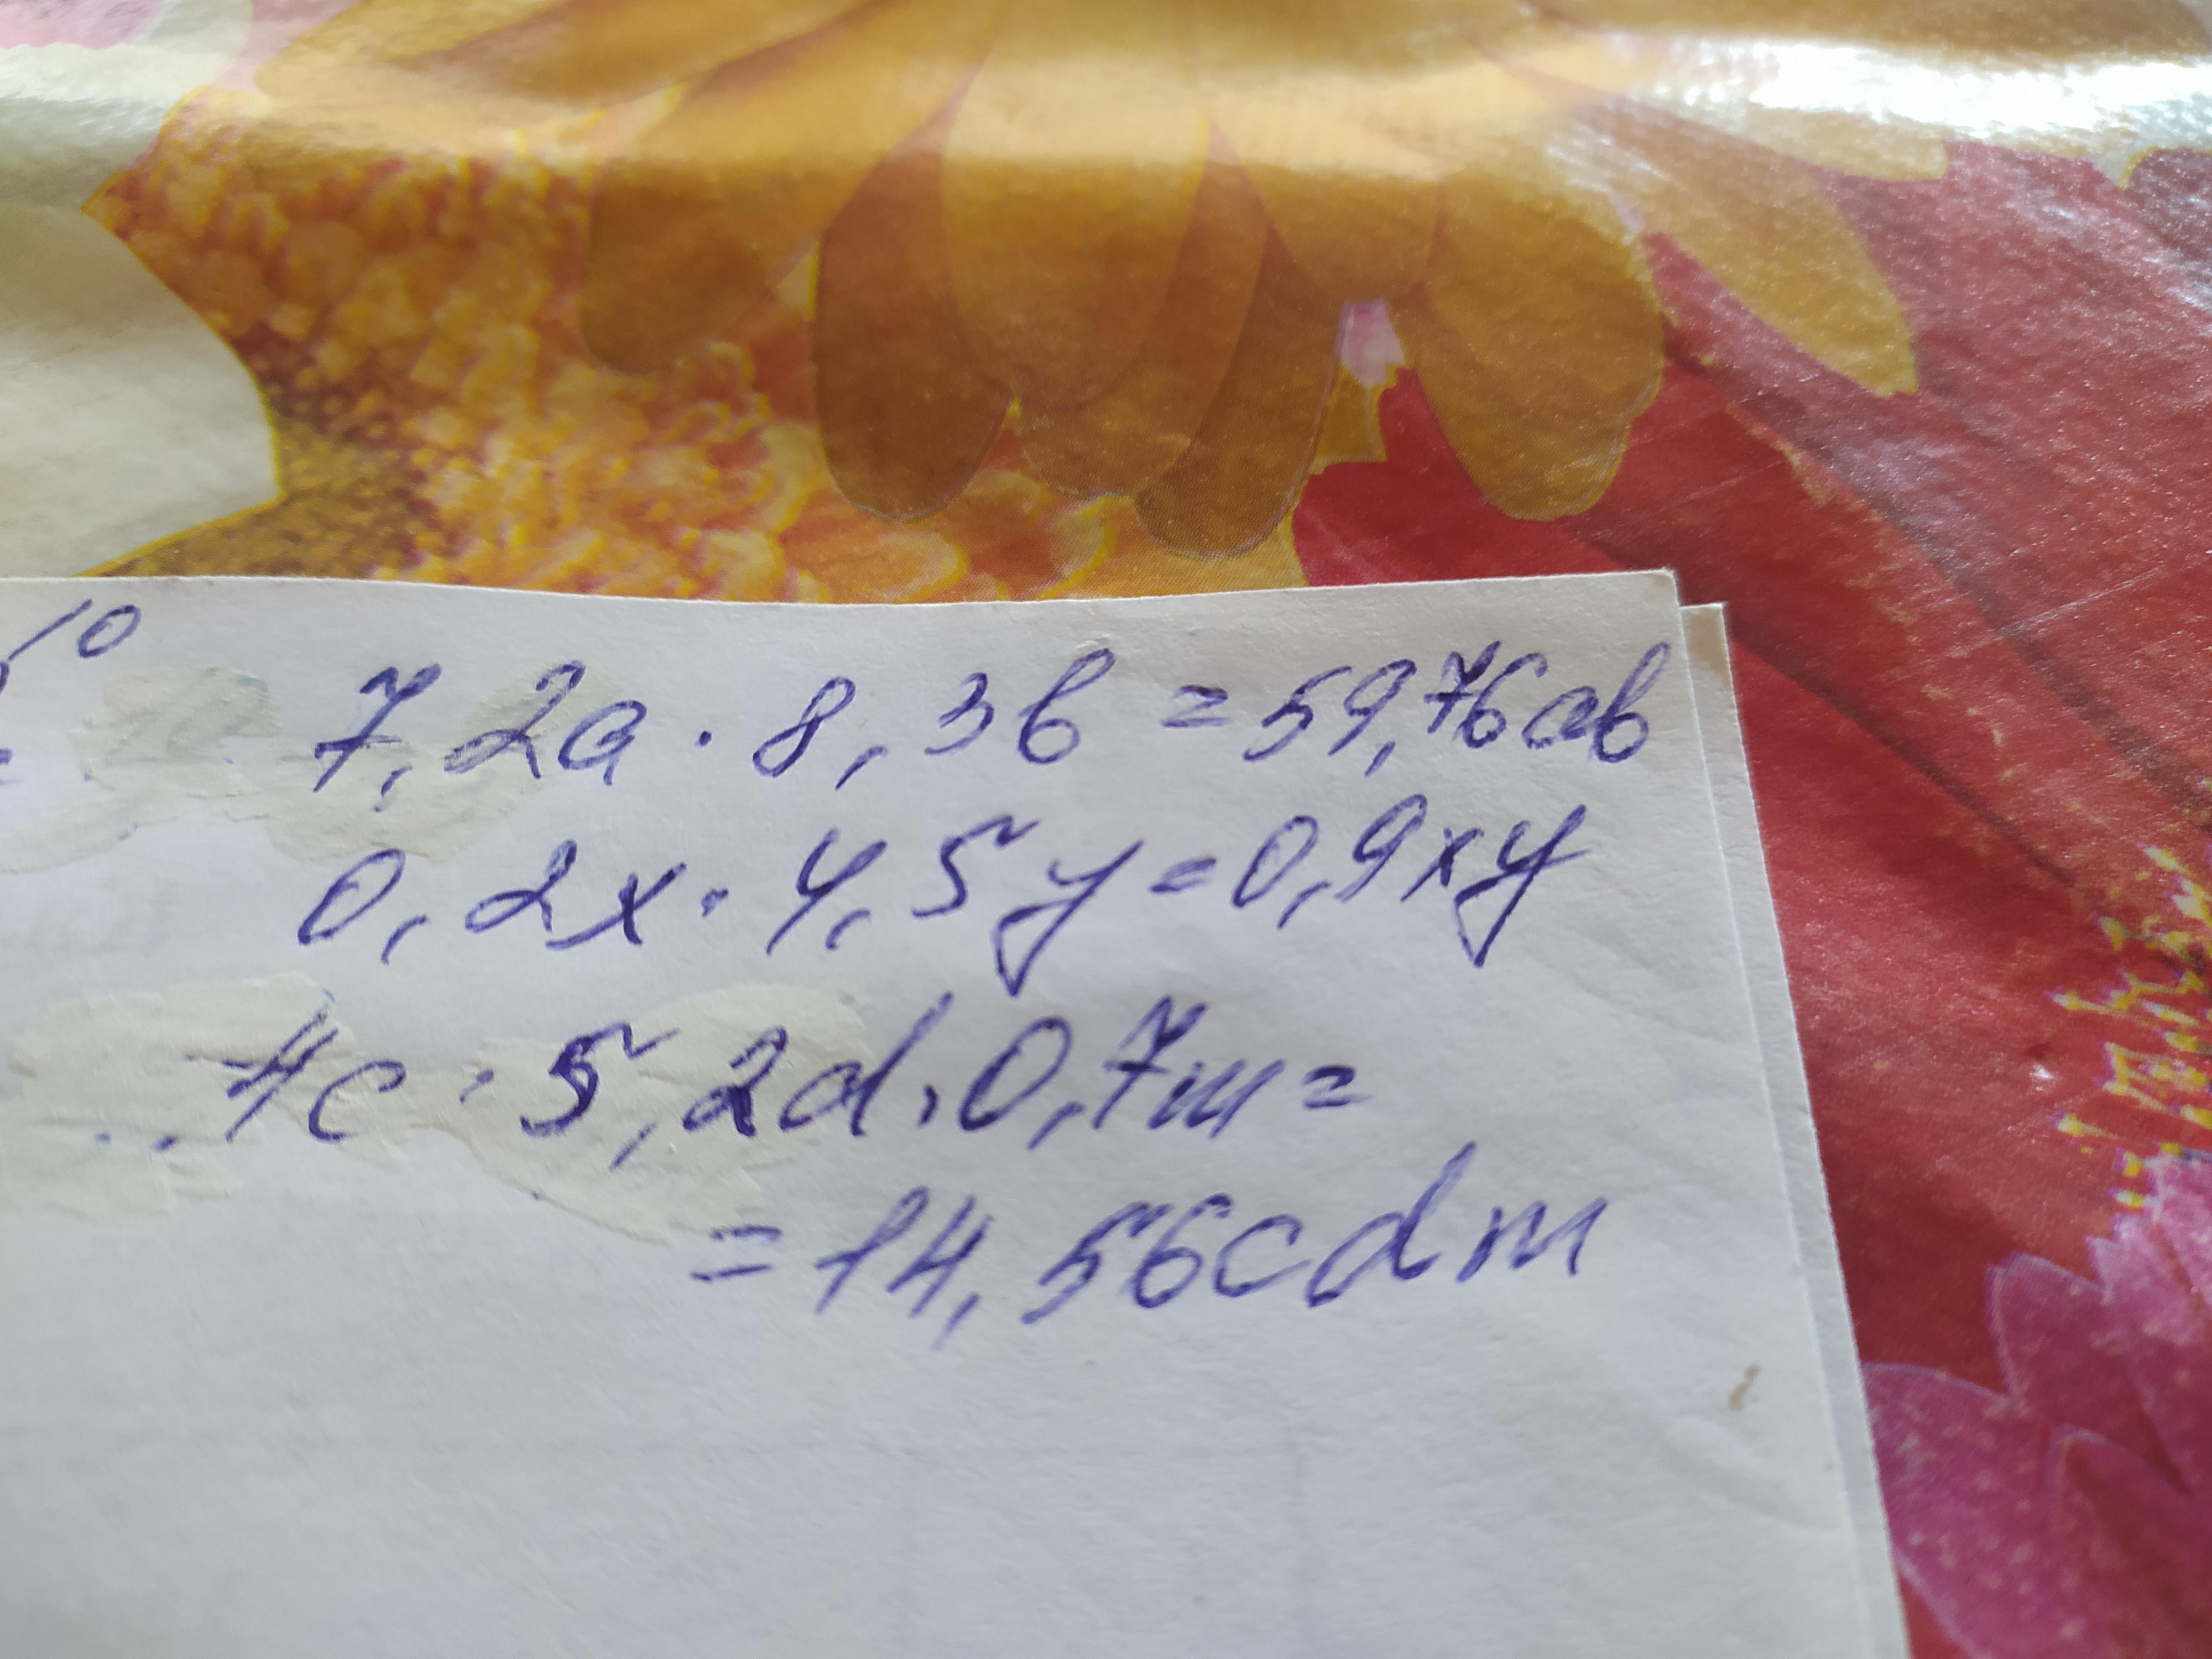 10
7,2a · 8,3b = 59,76ab
0,2x · 4,5y = 0,9xy
4c · 5,2d · 0,7m =
= 14,56cdm